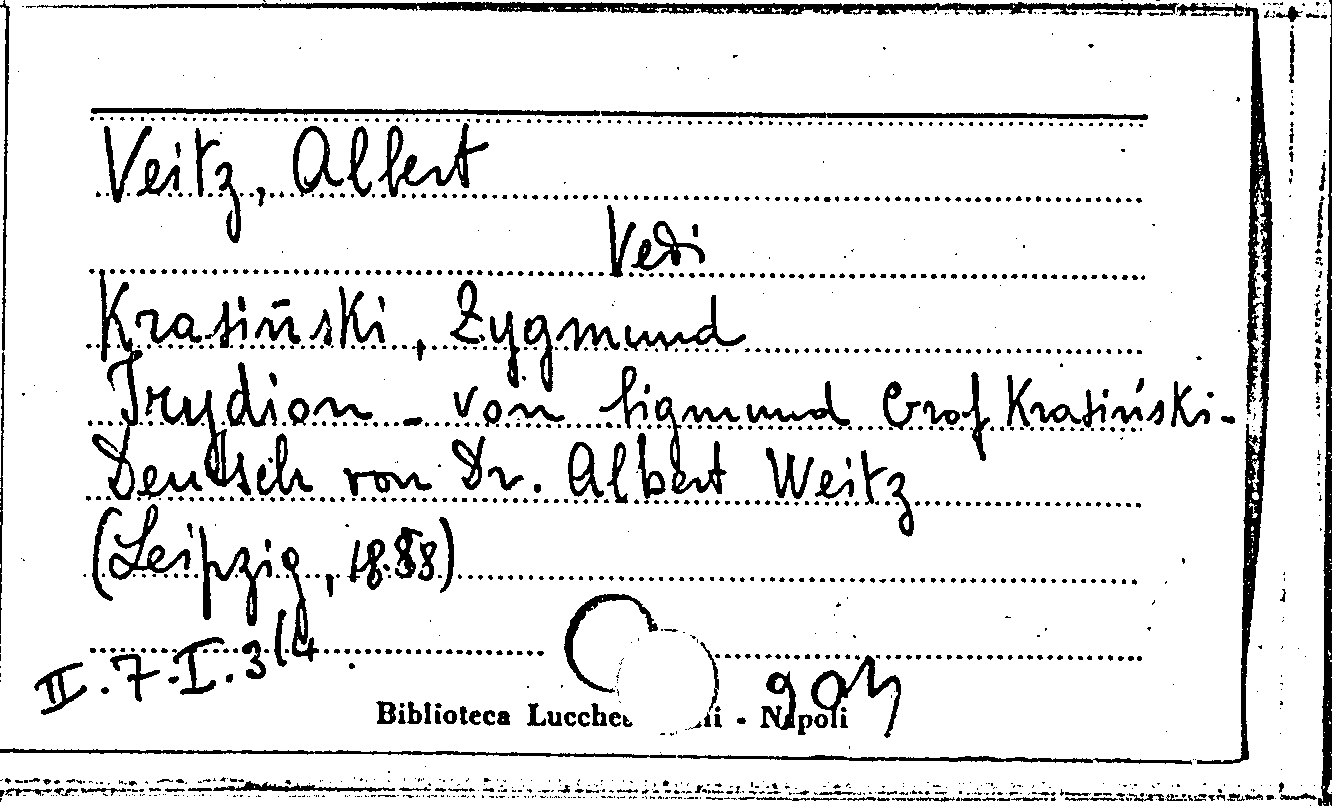 Veitz, Albert
Vedi
Krasiński, Zygmund
Irydion - von Sigmund Graf Krasiński -
Deutsch von Dr. Albert Weitz
(Leipzig, 18.88)
II.7.I.3(4
Biblioteca - Napoli